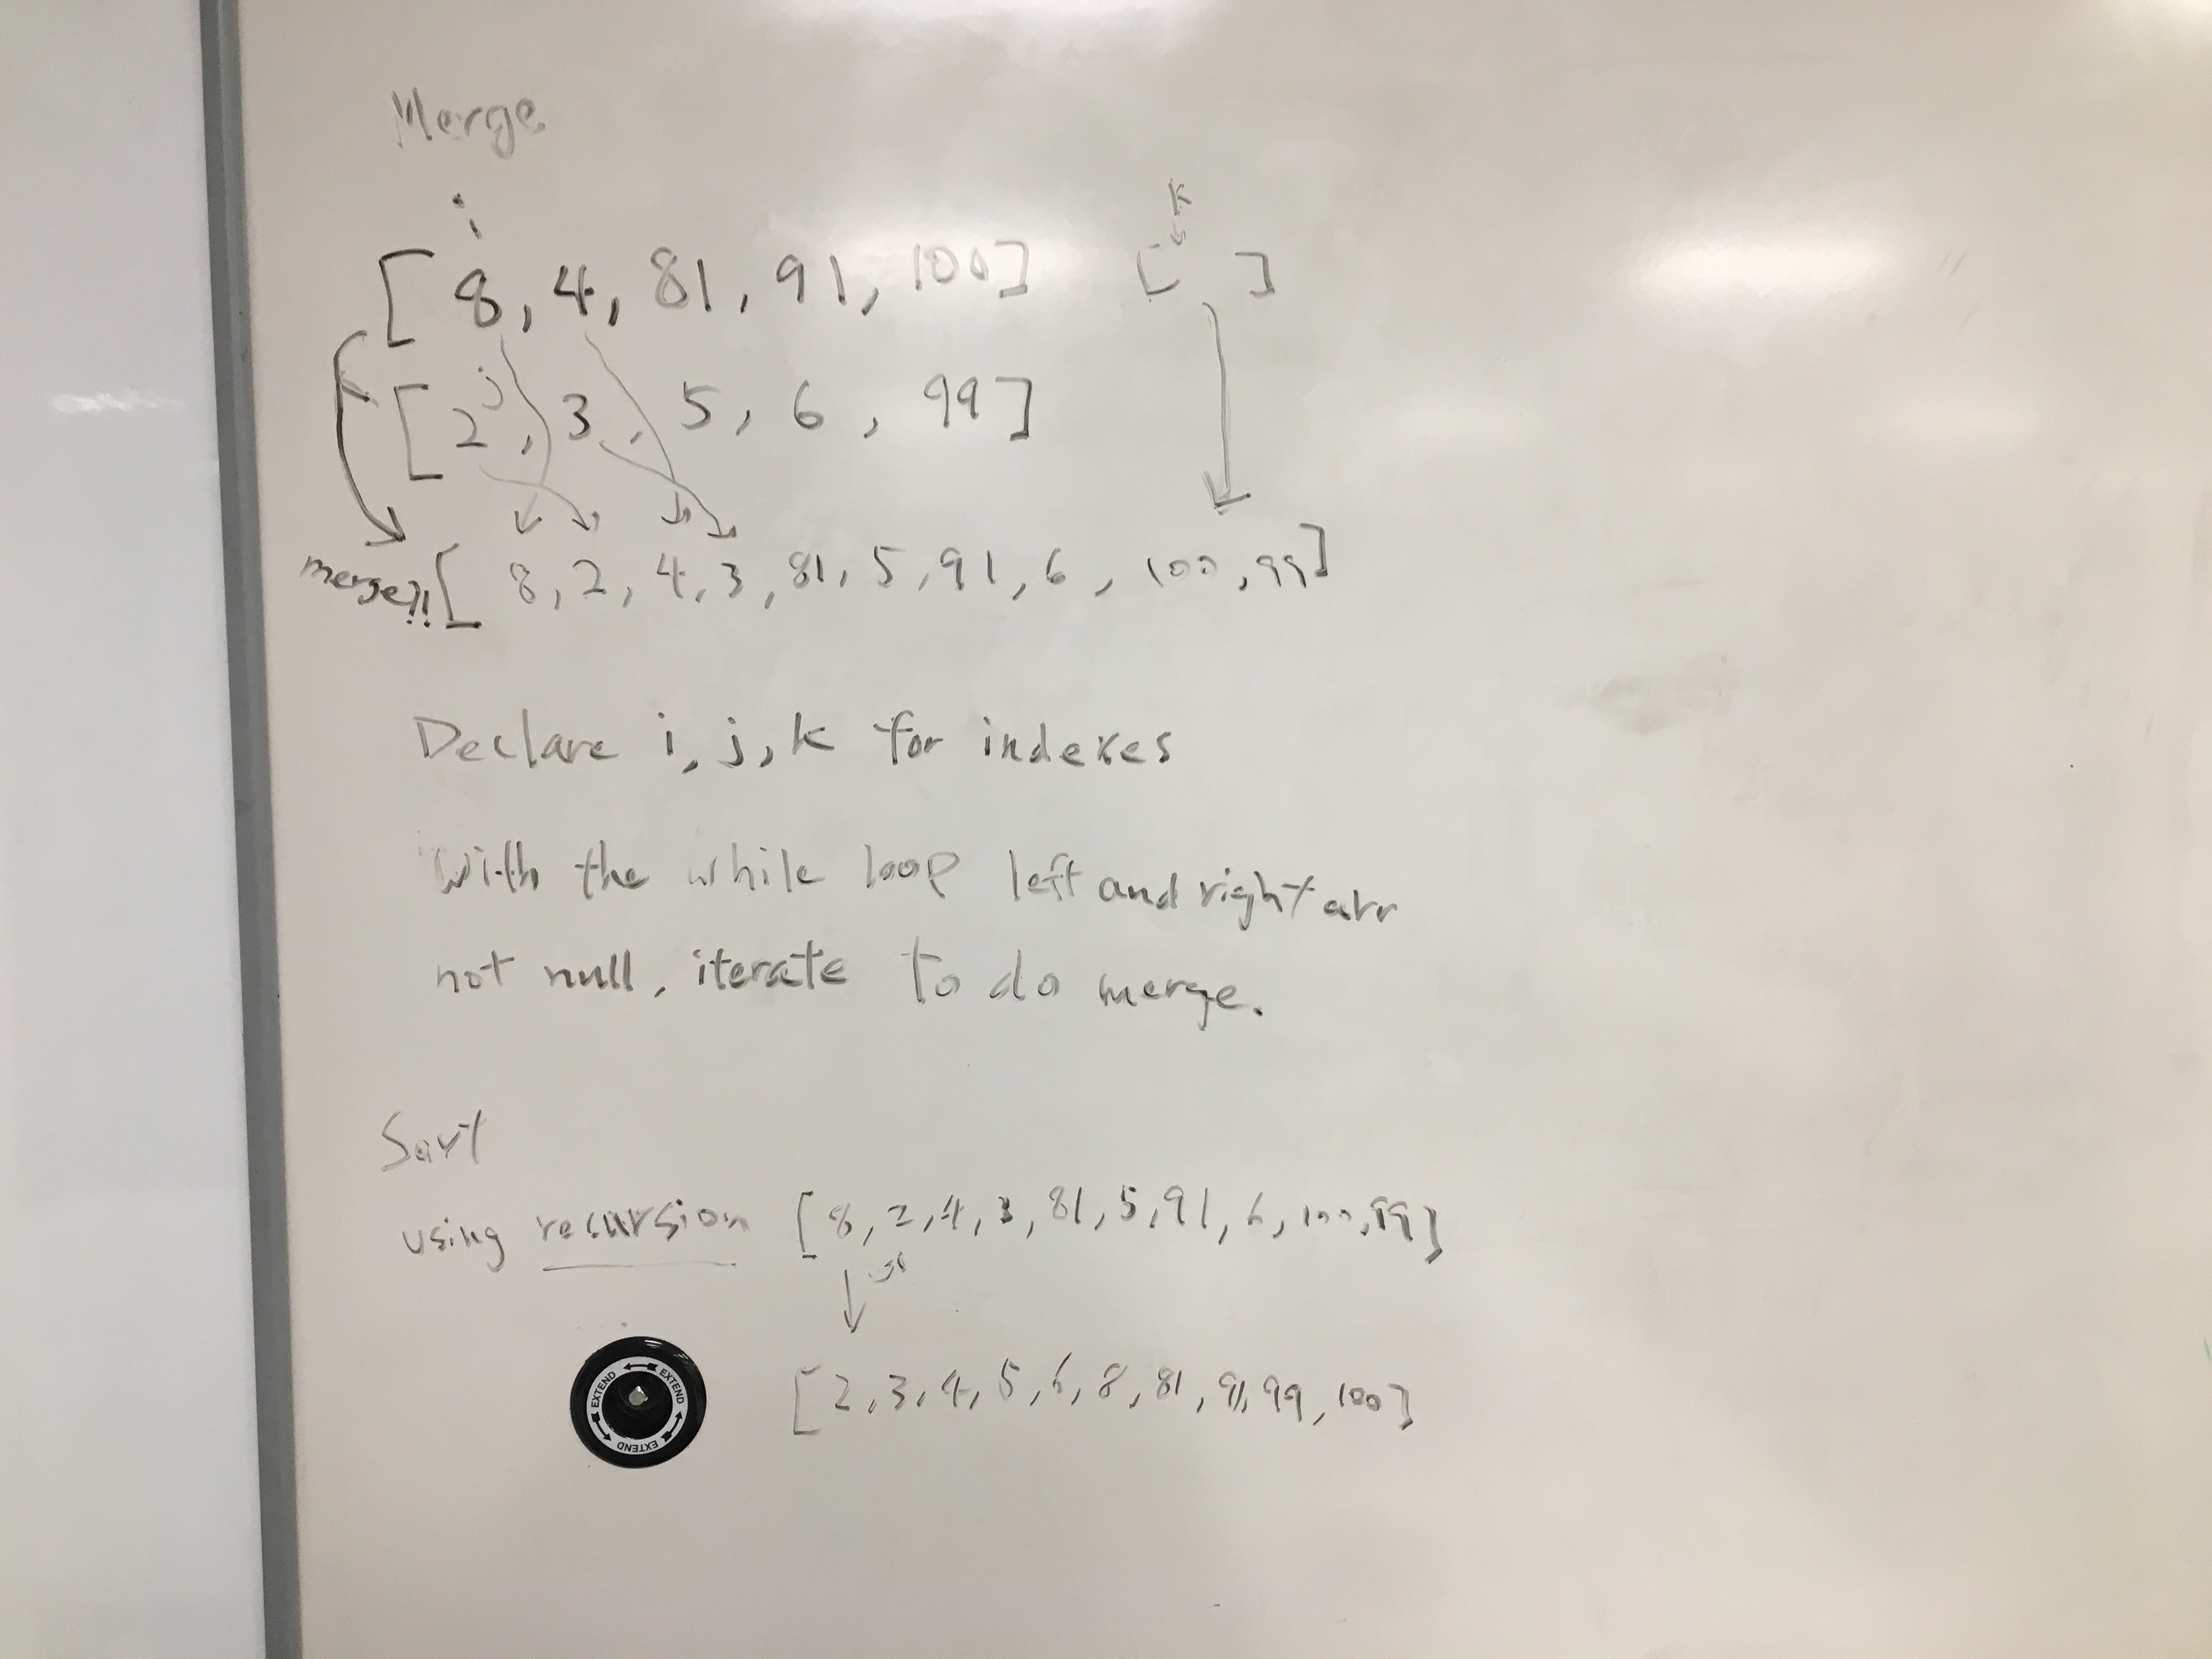 Merge
i
k
[ 8, 4, 81, 91, 100] [ ]
j
[ 2, 3, 5, 6, 99]
merge?![ 8, 2, 4, 3, 81, 5, 91, 6, 100, 99]
Declare i, j, k for indexes
With the while loop left and right arr
not null, iterate to do merge.
Sort
using recursion [8, 2, 4, 3, 81, 5, 91, 6, 100, 99]
[2, 3, 4, 5, 6, 8, 81, 91, 99, 100]
EXTEND EXTEND EXTEND